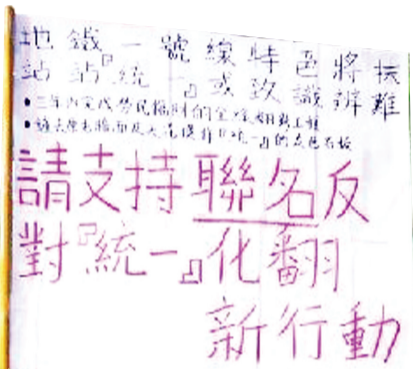 地鐵一號線特色將抹
站站『統一』或致識辨難
• 三年內完成勞民傷財的全線翻新工程
• 去原有牆面及天花換作『統一』的灰色石板
請支持聯名反
對『統一』化翻
新行動